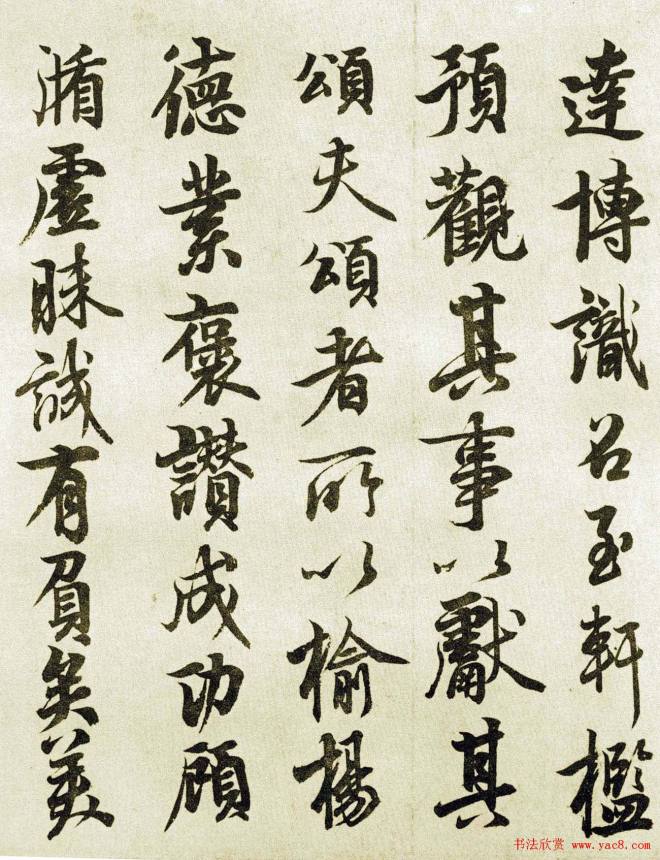 達博識召至軒檻
預觀其事以獻其
頌夫頌者所以榆楊
德業褒讚成功顧
循虛昧誠有負矣美
书法欣赏 www.yac8.com